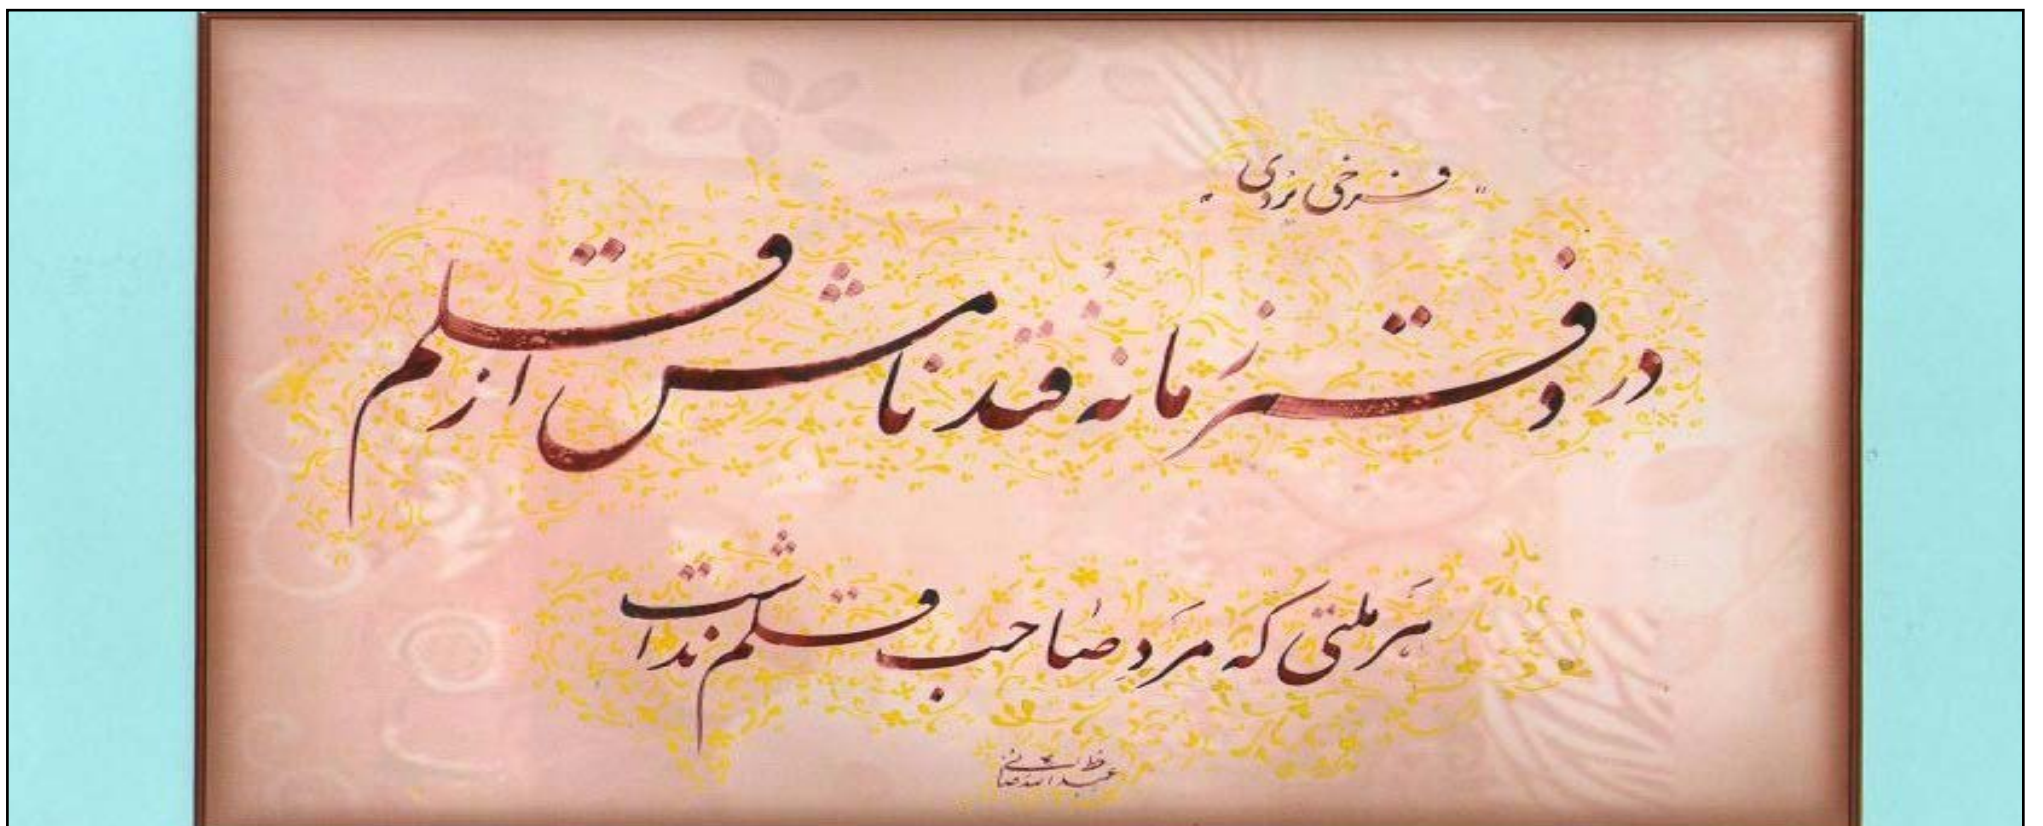 فرخی یزدی
در دفتر زمانه فتد نامش از قلم
هر ملتی که مردِ صاحب قلم نداشت
خط عبدالله